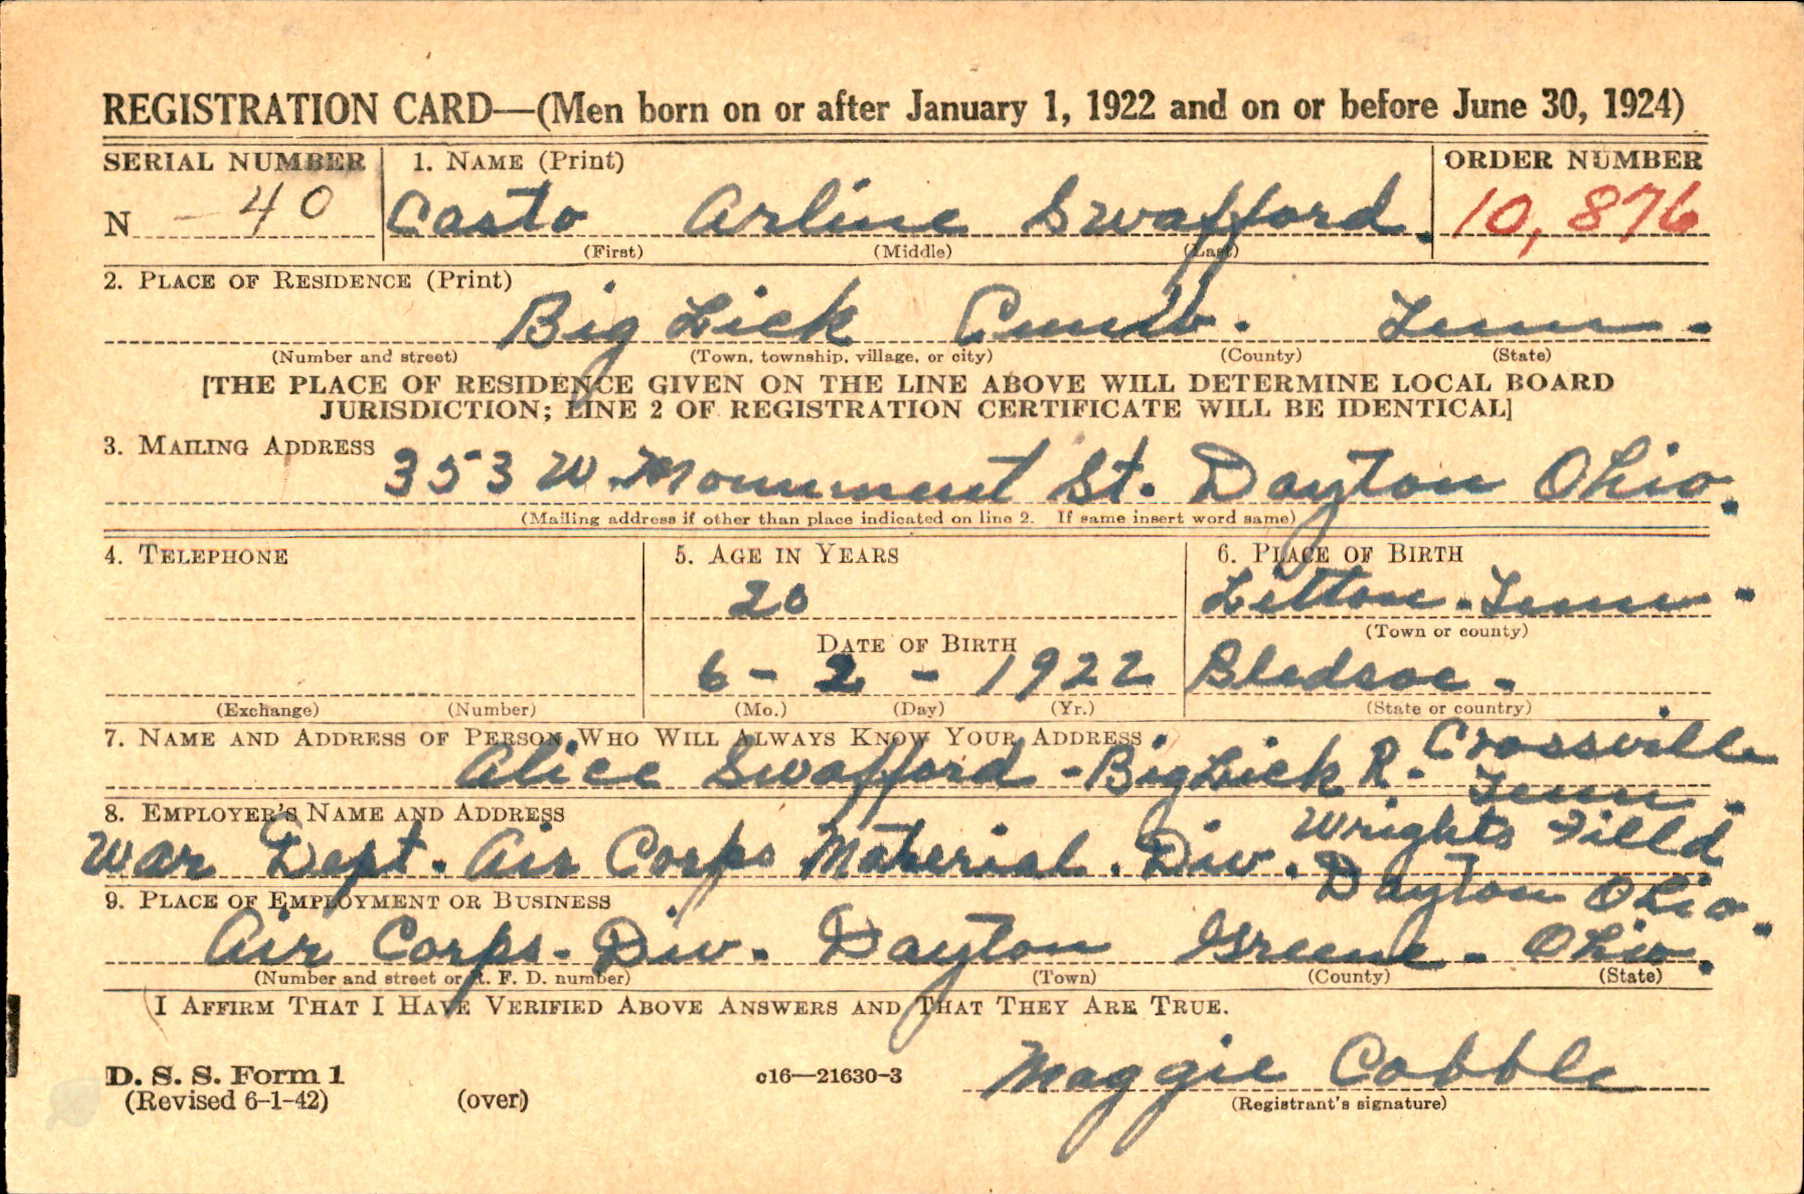 REGISTRATION CARD—(Men born on or after January 1, 1922 and on or before June 30, 1924)
SERIAL NUMBER 1. NAME (Print) ORDER NUMBER
N - 40 Casto Arline Swafford. 10,876
(First) (Middle) (Last)
2. PLACE OF RESIDENCE (Print)
Big Lick Cumb. Tenn.
(Number and street) (Town, township, village, or city) (County) (State)
[THE PLACE OF RESIDENCE GIVEN ON THE LINE ABOVE WILL DETERMINE LOCAL BOARD
JURISDICTION; LINE 2 OF REGISTRATION CERTIFICATE WILL BE IDENTICAL]
3. MAILING ADDRESS
353 W. Monument St. Dayton Ohio.
(Mailing address if other than place indicated on line 2. If same insert word same)
4. TELEPHONE 5. AGE IN YEARS 6. PLACE OF BIRTH
20 Litton. Tenn.
DATE OF BIRTH (Town or county)
6 - 2 - 1922 Bledsoe -
(Exchange) (Number) (Mo.) (Day) (Yr.) (State or country)
7. NAME AND ADDRESS OF PERSON WHO WILL ALWAYS KNOW YOUR ADDRESS
Alice Swafford - Big Lick R. Crossville
Tenn.
8. EMPLOYER'S NAME AND ADDRESS
War Dept. Air Corps Material. Div. Wrights Filld
Dayton Ohio.
9. PLACE OF EMPLOYMENT OR BUSINESS
Air Corps. Div. Dayton Greene - Ohio.
(Number and street or R. F. D. number) (Town) (County) (State)
I AFFIRM THAT I HAVE VERIFIED ABOVE ANSWERS AND THAT THEY ARE TRUE.
D. S. S. Form 1
(Revised 6-1-42) (over) c16—21630-3 Maggie Cobble
(Registrant's signature)